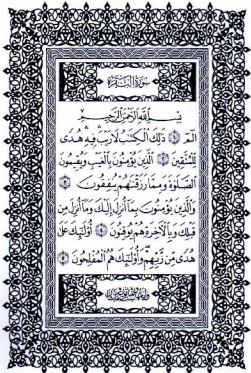 سُورَةُ الْبَقَرَةِ
بِسْمِ اللَّهِ الرَّحْمَٰنِ الرَّحِيمِ
الٓمٓ ۝١ ذَٰلِكَ الْكِتَٰبُ لَا رَيْبَ فِيهِ هُدًى
لِّلْمُتَّقِينَ ۝٢ الَّذِينَ يُؤْمِنُونَ بِالْغَيْبِ وَيُقِيمُونَ
الصَّلَوٰةَ وَمِمَّا رَزَقْنَٰهُمْ يُنفِقُونَ ۝٣
وَالَّذِينَ يُؤْمِنُونَ بِمَآ أُنزِلَ إِلَيْكَ وَمَآ أُنزِلَ مِن
قَبْلِكَ وَبِالْءَاخِرَةِ هُمْ يُوقِنُونَ ۝٤ أُو۟لَٰٓئِكَ عَلَىٰ
هُدًى مِّن رَّبِّهِمْ وَأُو۟لَٰٓئِكَ هُمُ الْمُفْلِحُونَ ۝٥